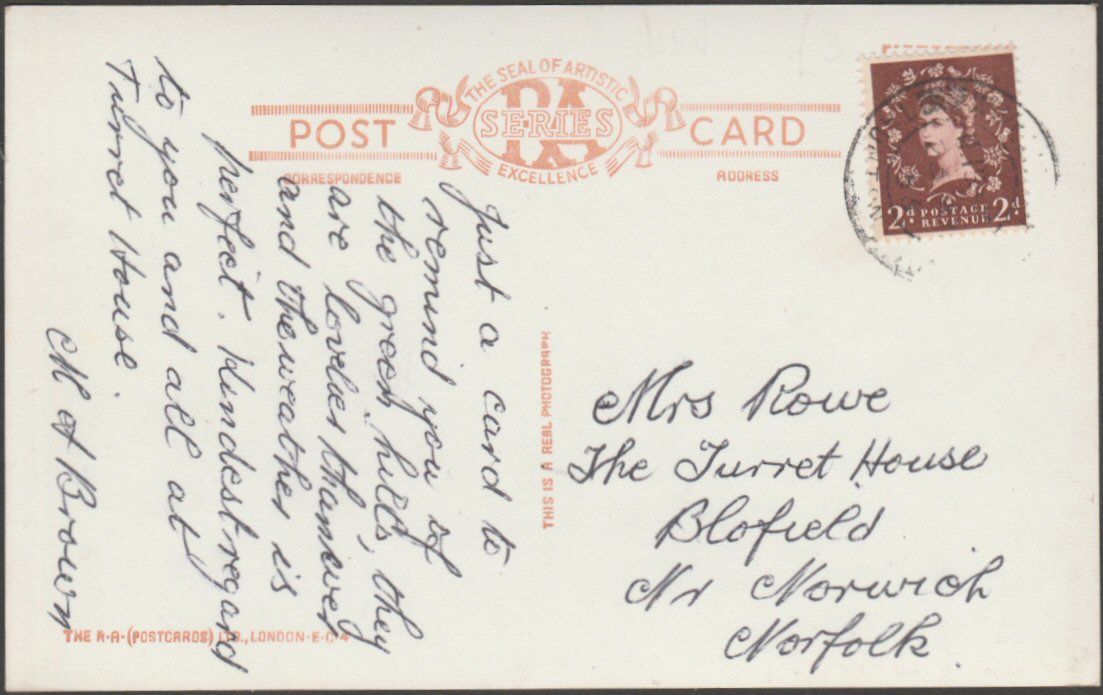 THE SEAL OF ARTISTIC
RA
SERIES
EXCELLENCE
POST CARD
CORRESPONDENCE
ADDRESS
2d POSTAGE 2d
REVENUE
Just a card to
remind you of
the green hills, they
are lovelier than ever
and the weather is
perfect. Kindest regard
to you and all at
Turret House.
M A Brown
THIS IS A REAL PHOTOGRAPH
Mrs Rowe
The Turret House
Blofield
Nr Norwich
Norfolk.
THE R.A. (POSTCARDS) LTD., LONDON. E.C.4